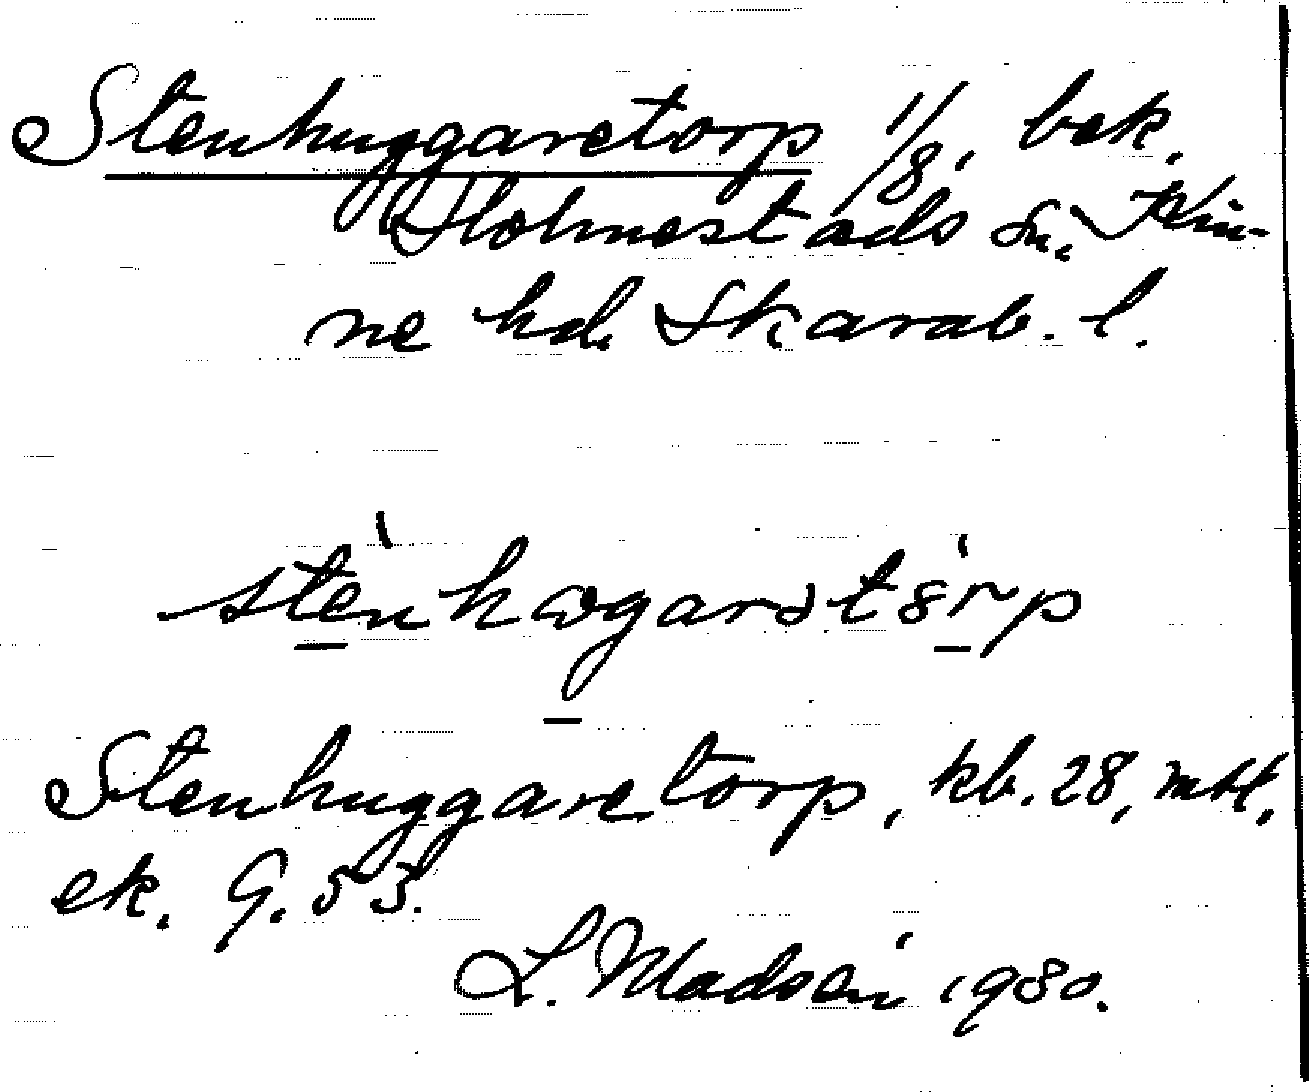 Stenhuggaretorp 1/8, bek.
Holmestads sn, Kin-
ne hd. Skarab. l.
stènhωgarətörp
Stenhuggaretorp, kb. 28, mtl,
ek. 9. 53.
L. Madsén 1980.